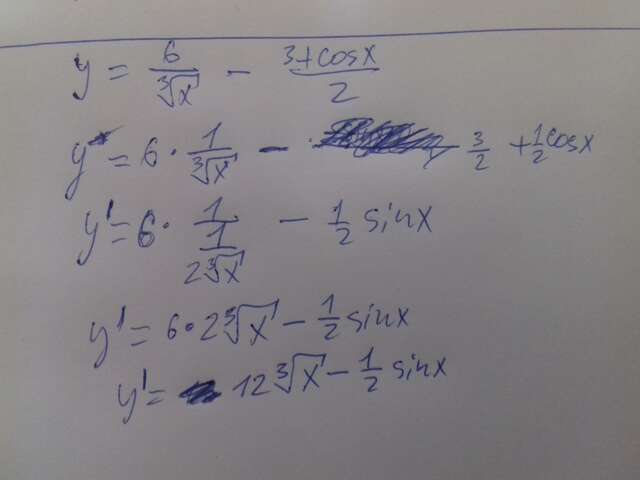 y = 6/∛x − (3+cosx)/2
y = 6 · 1/∛x − − 3/2 + 1/2 cosx
y' = 6 · 1/(1/(2∛x)) − 1/2 sinx
y' = 6 · 2∛x − 1/2 sinx
y' = 12∛x − 1/2 sinx